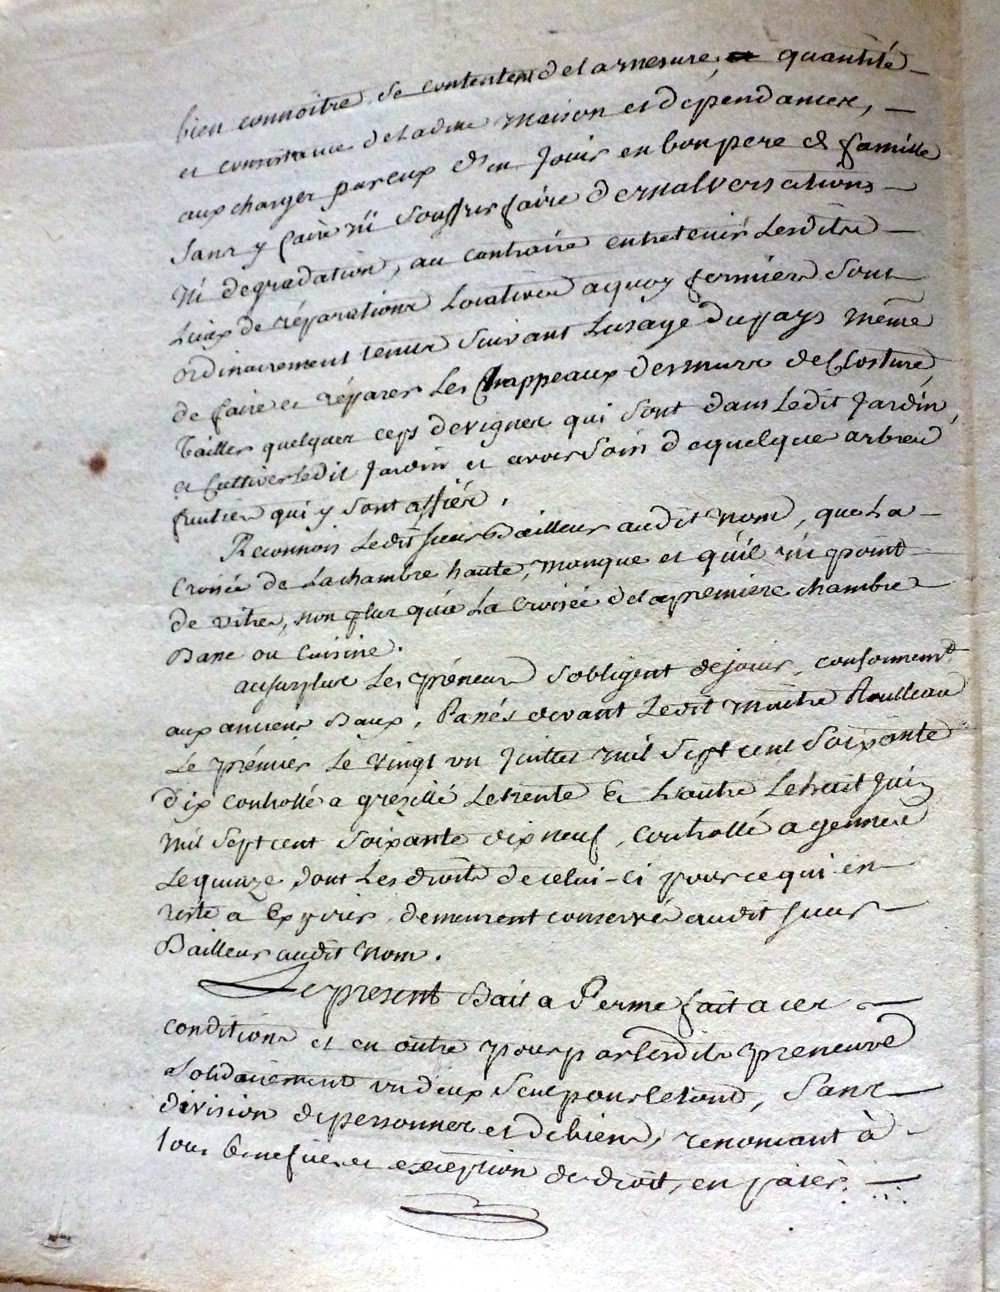 bien connoitre, se contentent de la mesure, quantité
et consistance de ladite maison et dependances,
aux charges par eux d'en jouir en bon pere de famille
sans y faire ni souffrir faire de malversations
ni degradation, au contraire entretenir lesdits
lieux de réparations locatives a quoy fermiers sont
ordinairement tenus suivant lusage du pays même
de faire et réparer les chappeaux des murs de closture,
tailler quelques ceps de vignes qui sont dans ledit jardin,
et cultiver ledit jardin et avoir soin de quelque arbres
fruitiers qui y sont affiés.
Reconnois ledit sieur Bailleur audit nom, que la
croisée de la chambre haute, manque et qu'il ni a point
de vitres, non plus qu'a la croisée de la premiere chambre
Basse ou cuisine.
au surplus les préneurs s'obligent de jouir, conformemt
aux anciens Baux, Passés devant ledit maitre Roulleau
le prémier le vingt un juillet mil sept cent soixante
dix controllé a gréxillé le trente & l'autre le huit juin
mil sept cent soixante dix neuf, controllé a gennes
le quinze, dont les droits de celui-ci pour ce qui en
reste a Expirer demeurent conservés audit sieur
Bailleur audit nom.
Le present Bail a Ferme fait a ces
conditions et en outre pour par lesdits preneurs
solidairement un d'eux seul pour le tout, sans
division de personnes et de biens, renoncant à
tous benefices et exception de droit, en paier